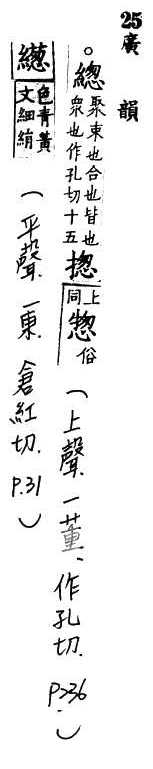 25廣韻
。緫聚束也合也皆也衆也作孔切十五揔上同惣俗(上聲一董、作孔切.P236.)
繱色青黃文細絹(平聲一東.倉紅切.P.31)